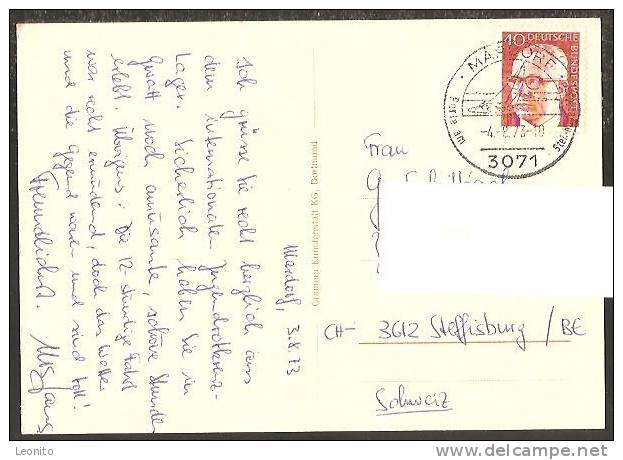 Mardorf,
3.8.73
Ich grüsse Sie recht herzlich aus
dem internationalen Jugendrotkreuz-
Lager. Sicherlich haben Sie in
Gwatt noch amüsante, schöne Stunden
erlebt. Übrigens: Die 12 stündige Fahrt
war recht ermüdend, doch das Wetter
und die Gegend waren und sind toll!
Freundlichst.
Cramers Kunstanstalt KG, Dortmund
40 DEUTSCHE
BUNDESPOST
MARDORF
Perle am
-4.-8.73-10
3071
Frau
CH- 3612 Steffisburg / BE
Schweiz
Leonito
delcampe.net